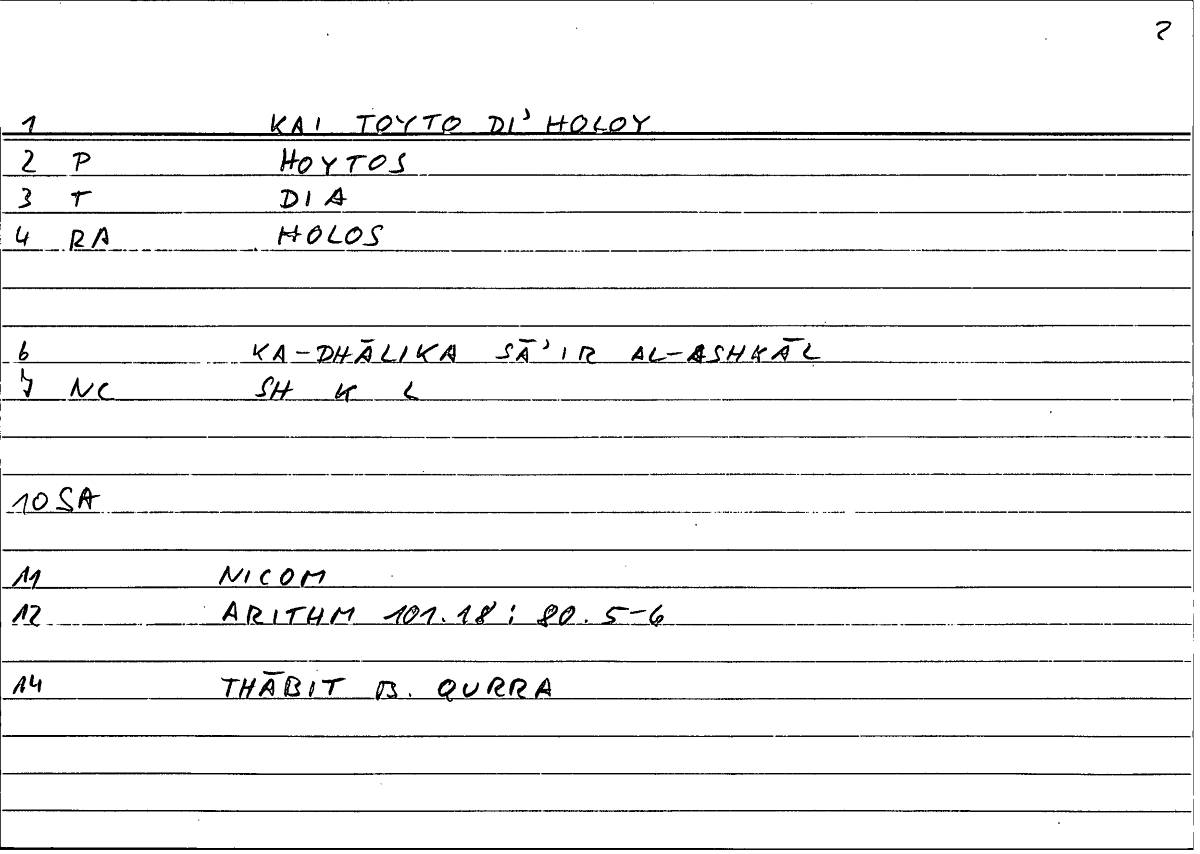 2
1 KAI TOYTO DI' HOLOY
2 P HOYTOS
3 T DIA
4 RA HOLOS
6 KA-DHĀLIKA SĀ'IR AL-ASHKĀL
7 NC SH K L
10 SA
11 NICOM
12 ARITHM 101.18 : 80.5-6
14 THĀBIT B. QURRA